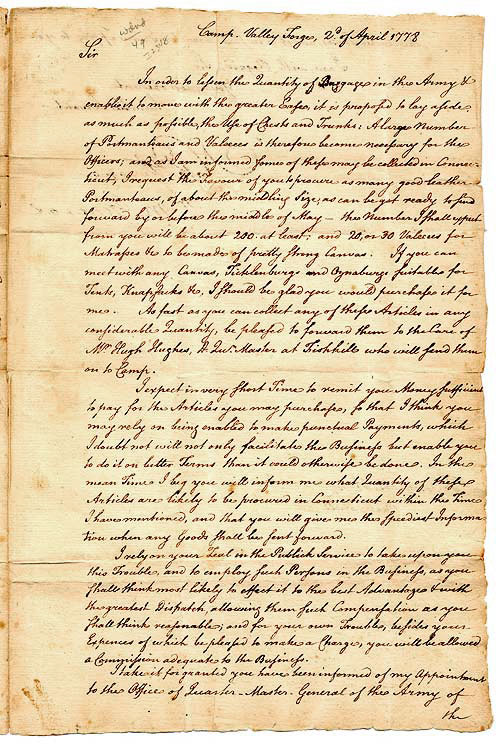 Camp Valley Forge, 2d. of April 1778
Sir
In order to lessen the Quantity of Baggage in the Army &
enable it to move with the greater Ease, it is proposed to lay aside
as much as possible, the Use of Chests and Trunks: A large Number
of Portmanteaus and Valeeses is therefore become necessary for the
Officers; and as I am informed some of these may be collected in Connec-
ticut; I request the Favour of you to procure as many good leather
Portmanteaus, of about the middling Size, as can be got ready to send
forward by or before the middle of May – the Number I shall expect
from you will be about 200. at least; and 20, or 30 Valeeses for
Matrasses &c to be made of pretty strong Canvas. If you can
meet with any Canvas, Ticklenburgs and Oznaburgs suitable for
Tents, Knapsacks &c, I should be glad you would purchase it for
me. As fast as you can collect any of these Articles in any
considerable Quantity, be pleased to forward them to the Care of
Mr. Hugh Hughes, D. Qur. Master at Fishkill who will send them
on to Camp.
I expect in very short Time to remit you Money sufficient
to pay for the Articles you may purchase, so that I think you
may rely on being enabled to make punctual Payments, which
I doubt not will not only facilitate the Business but enable you
to do it on better Terms than it could otherwise be done. In the
mean Time I beg you will inform me what Quantity of these
Articles are likely to be procured in Connecticut within the Time
I have mentioned, and that you will give me the speediest Informa-
tion when any Goods shall be sent forward.
I rely on your Zeal in the Publick Service to take upon you
this Trouble, and to employ such Persons in the Business, as you
shall think most likely to effect it to the best Advantage & with
the greatest Dispatch, allowing them such Compensation as you
shall think reasonable; and for your own Troubles, besides your
Expences of which be pleased to make a Charge, you will be allowed
a Commission adequate to the Business.
I take it for granted you have been informed of my Appointment
to the Office of Quarter-Master-General of the Army of
the